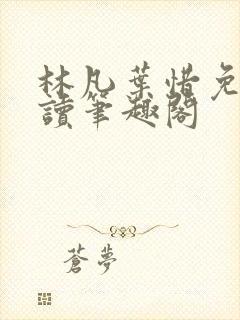 林凡葉惜免
讀筆趣閣
蒼夢